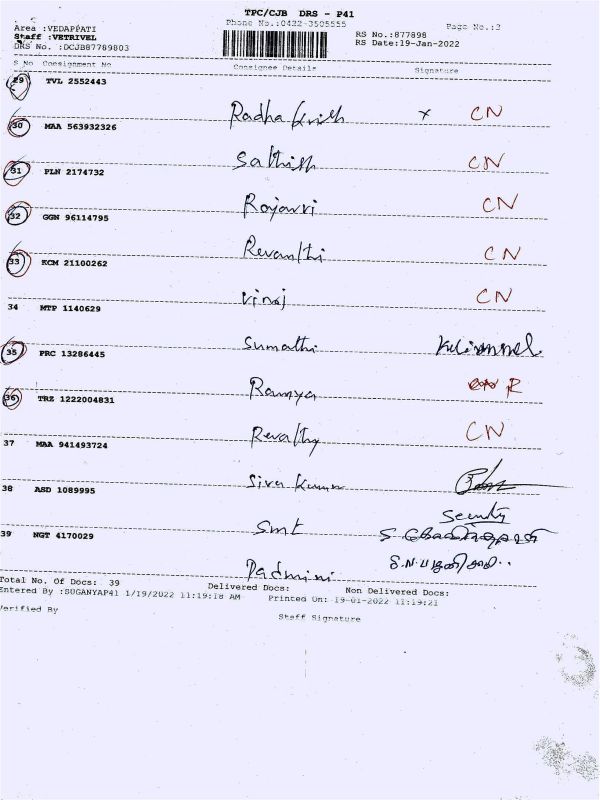 TPC/CJB DRS - P41
Phone No.:0422-3505555
Page No.:3
Area :VEDAPPATI
Staff :VETRIVEL
DRS No. :DCJB87789803
RS No.:877898
RS Date:19-Jan-2022
S No Consignment No Consignee Details Signature
29 TVL 2552443
Radha krish x CN
30 MAA 563932326
Sathish CN
31 PLN 2174732
Rajavri CN
32 GGN 96114795
Revanthi CN
33 KCM 21100262
Viraj CN
34 MTP 1140629
Sumathi
35 PRC 13286445
Ramya R
36 TRZ 1222004831
Revathy CN
37 MAA 941493724
Siva Kumar
38 ASD 1089995
Security
Smt
39 NGT 4170029
Padmini
Total No. Of Docs: 39 Delivered Docs: Non Delivered Docs:
Entered By :SUGANYAP41 1/19/2022 11:19:18 AM Printed On: 19-01-2022 11:19:21
Verified By Staff Signature